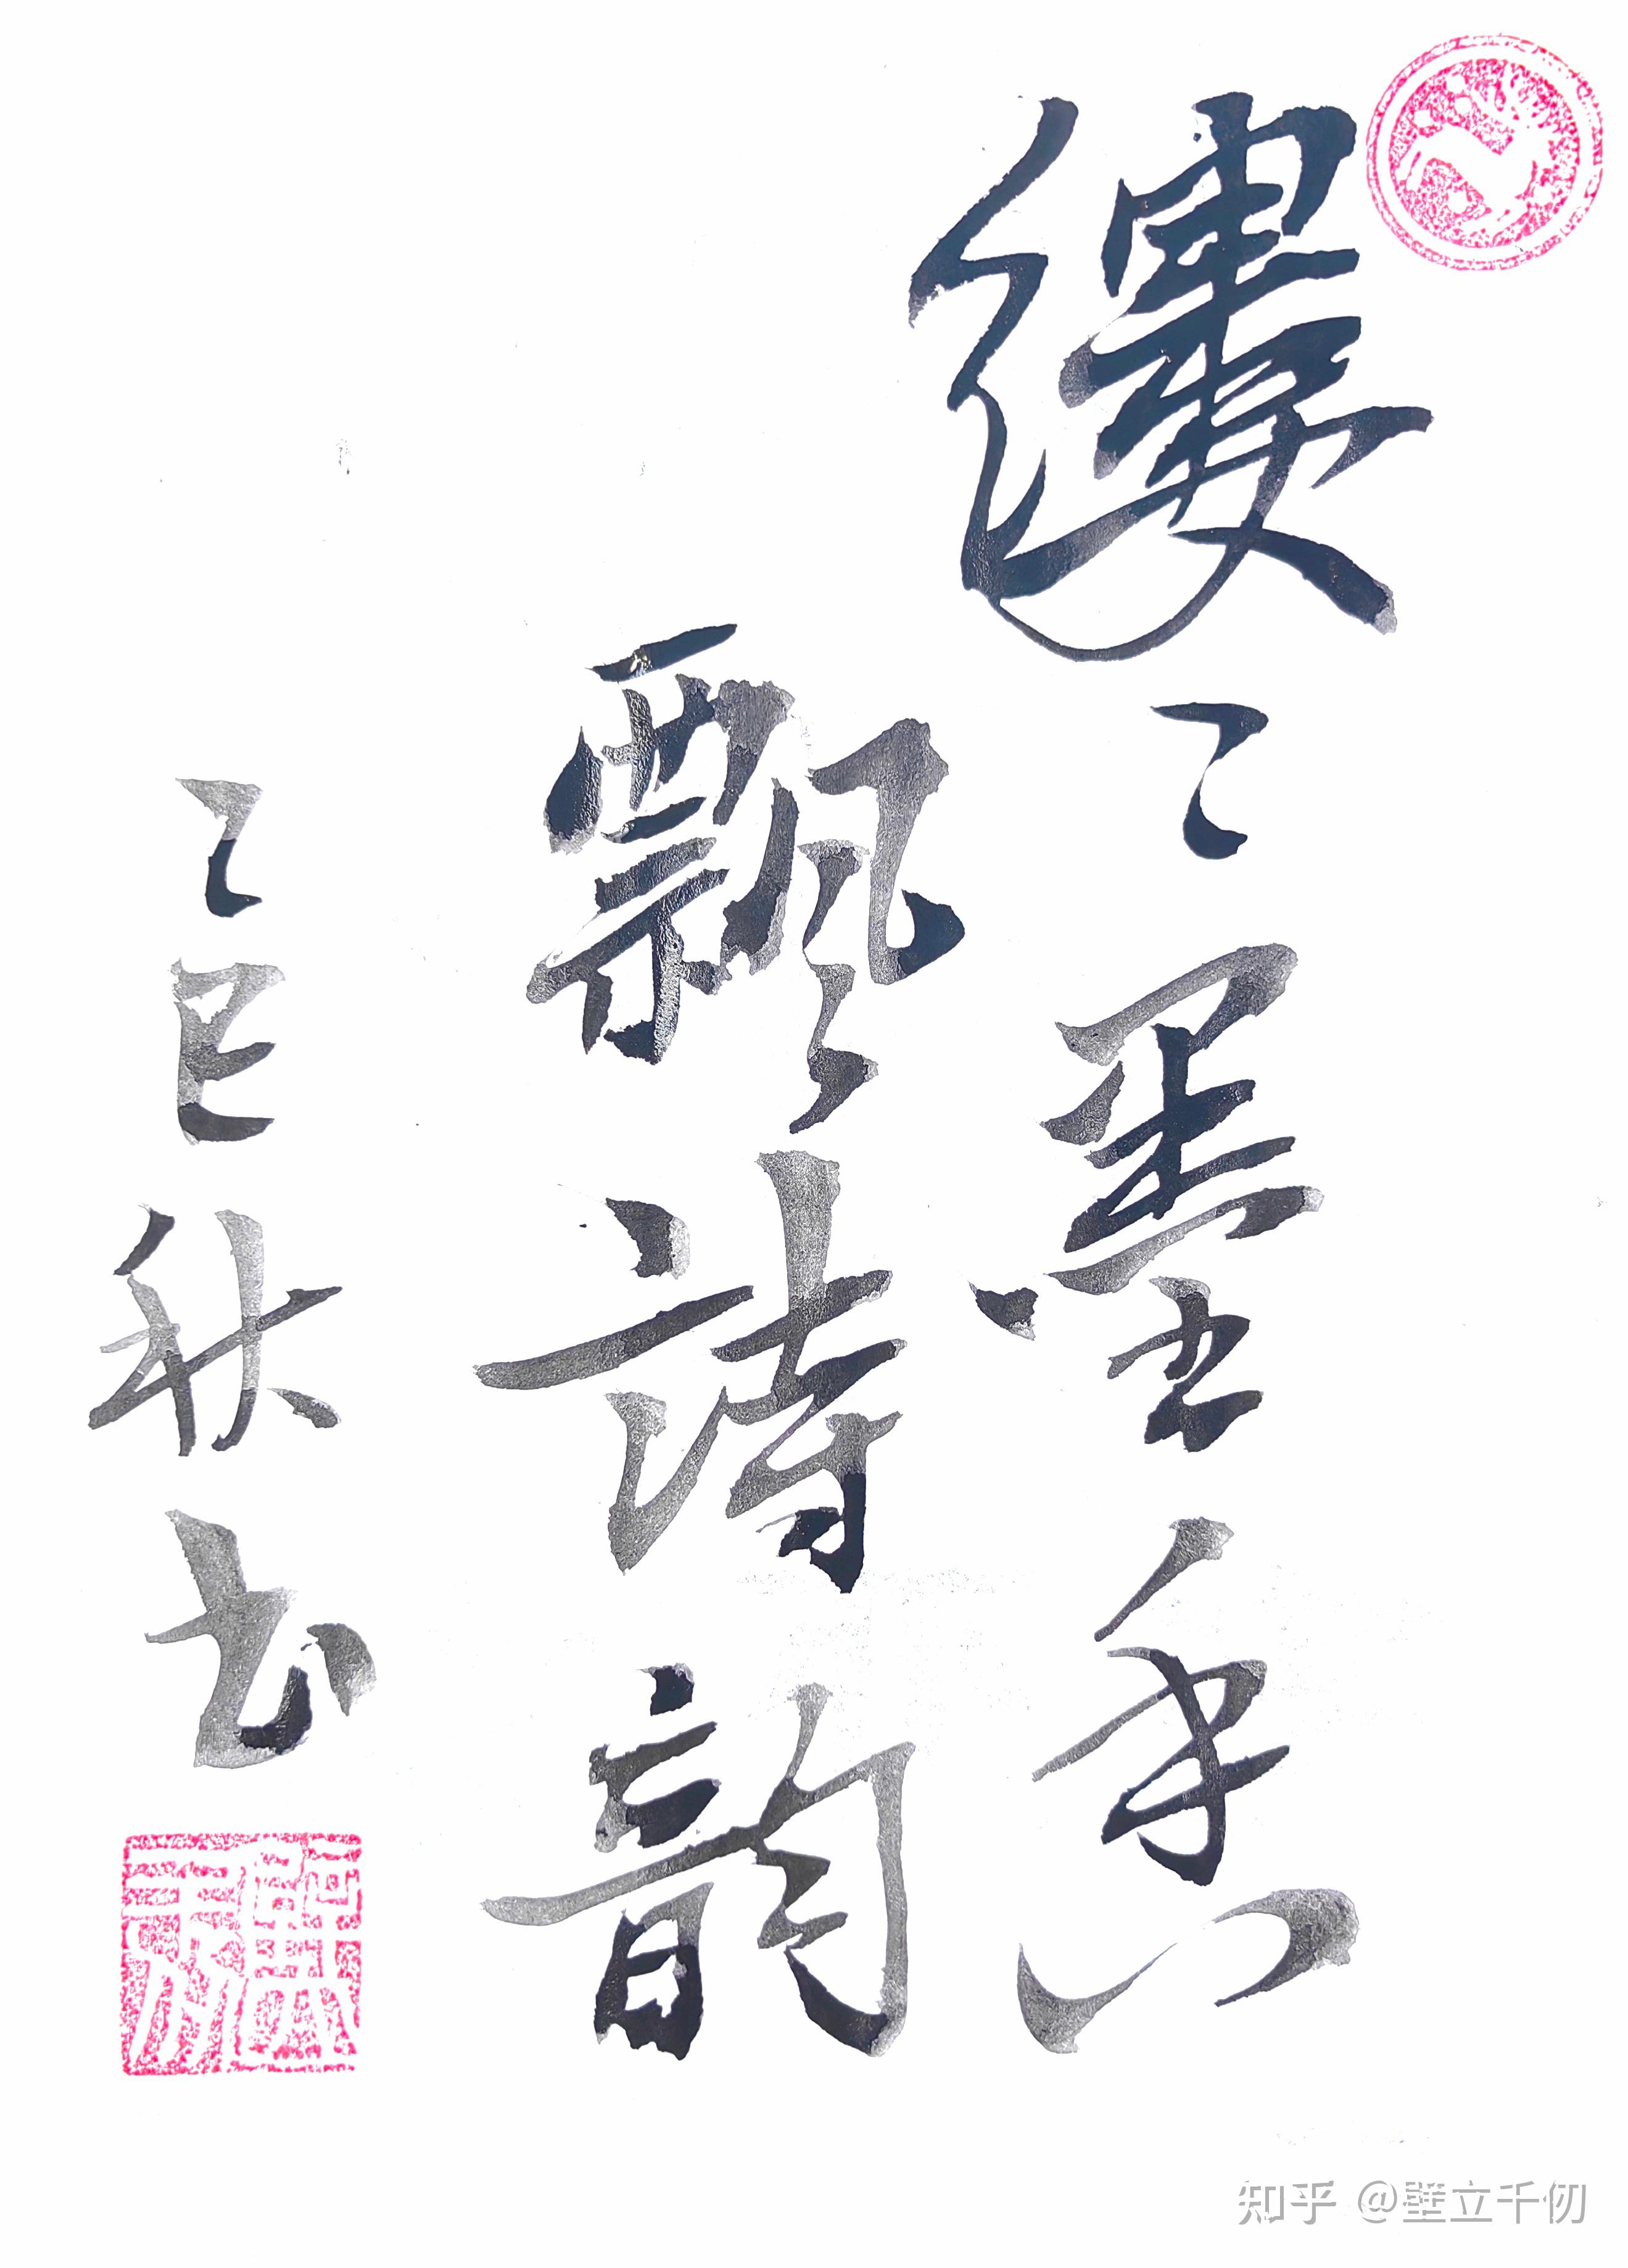 縷々墨香
飄詩韻
乙巳秋书
知乎 @壁立千仞